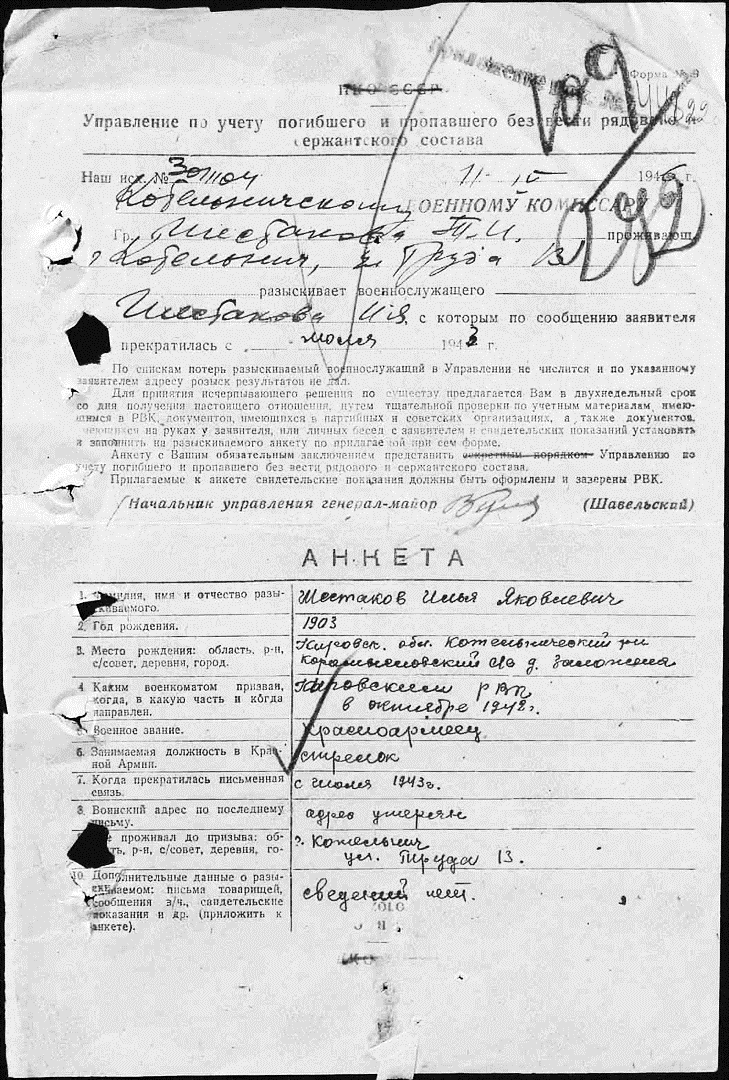 Форма № 9
НКО СССР
Управление по учету погибшего и пропавшего без вести рядового и
сержантского состава
Наш исх. № 11 IV 1946 г.
Котельническому ВОЕННОМУ КОМИССАРУ
Гр. Шестакова Т.И. проживающ.
г Котельнич, ул Труда 13
разыскивает военнослужащего
Шестакова И.Я. с которым по сообщению заявителя
прекратилась с июля 1943 г.
По спискам потерь разыскиваемый военнослужащий в Управлении не числится и по указанному
заявителем адресу розыск результатов не дал.
Для принятия исчерпывающего решения по существу предлагается Вам в двухнедельный срок
со дня получения настоящего отношения, путем тщательной проверки по учетным материалам, имею-
щимся в РВК, документов, имеющихся в партийных и советских организациях, а также документов,
имеющихся на руках у заявителя, или личных бесед с заявителем и свидетельских показаний установить
и заполнить на разыскиваемого анкету по прилагаемой при сем форме.
Анкету с Вашим обязательным заключением представить секретным порядком Управлению по
учету погибшего и пропавшего без вести рядового и сержантского состава.
Прилагаемые к анкете свидетельские показания должны быть оформлены и заверены РВК.
Начальник управления генерал-майор (Шавельский)
189
292
АНКЕТА
1. Фамилия, имя и отчество разы-
скиваемого.
Шестаков Илья Яковлевич
2. Год рождения.
1903
3. Место рождения: область, р-н,
с/совет, деревня, город.
Кировск. обл. Котельнический р-н
с/с д.
4. Каким военкоматом призван,
когда, в какую часть и когда
направлен.
Кировским РВК
в октябре 1942 г.
5. Военное звание.
Красноармеец
6. Занимаемая должность в Крас-
ной Армии.
стрелок
7. Когда прекратилась письменная
связь.
с июля 1943 г.
8. Воинский адрес по последнему
письму.
адрес утерян
проживал до призыва: об-
ть, р-н, с/совет, деревня, го-
г. Котельнич
ул. Труда 13.
10. Дополнительные данные о разы-
скиваемом: письма товарищей,
сообщения в/ч., свидетельские
показания и др. (приложить к
анкете).
сведений нет.